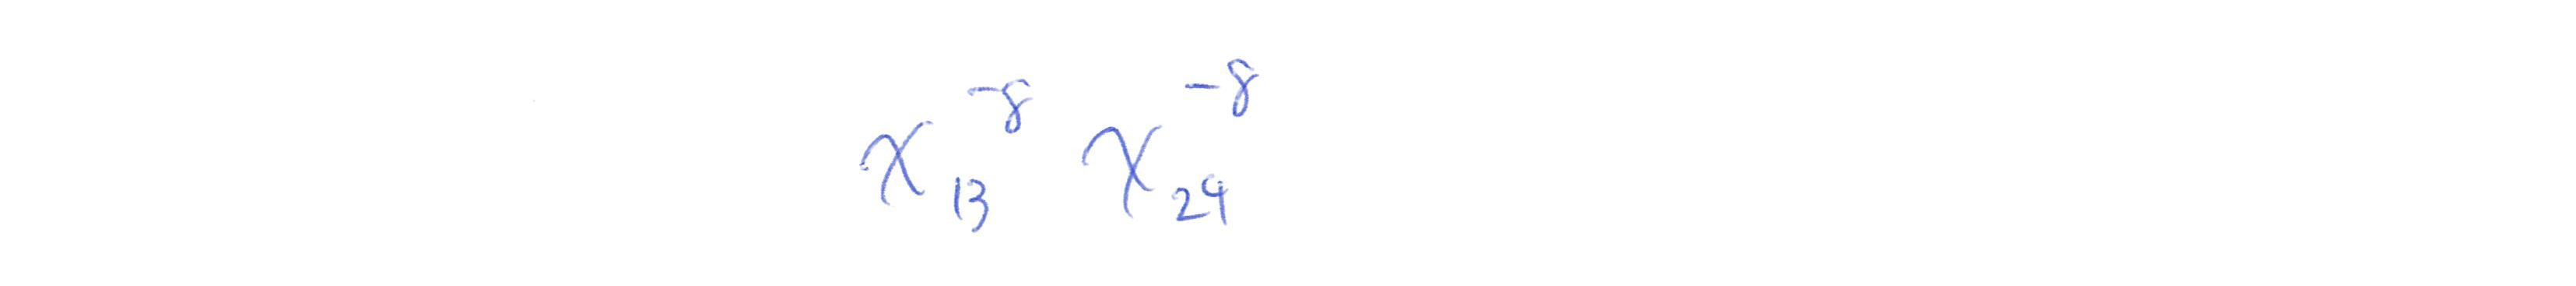 x_{13}^{-8} x_{24}^{-8}